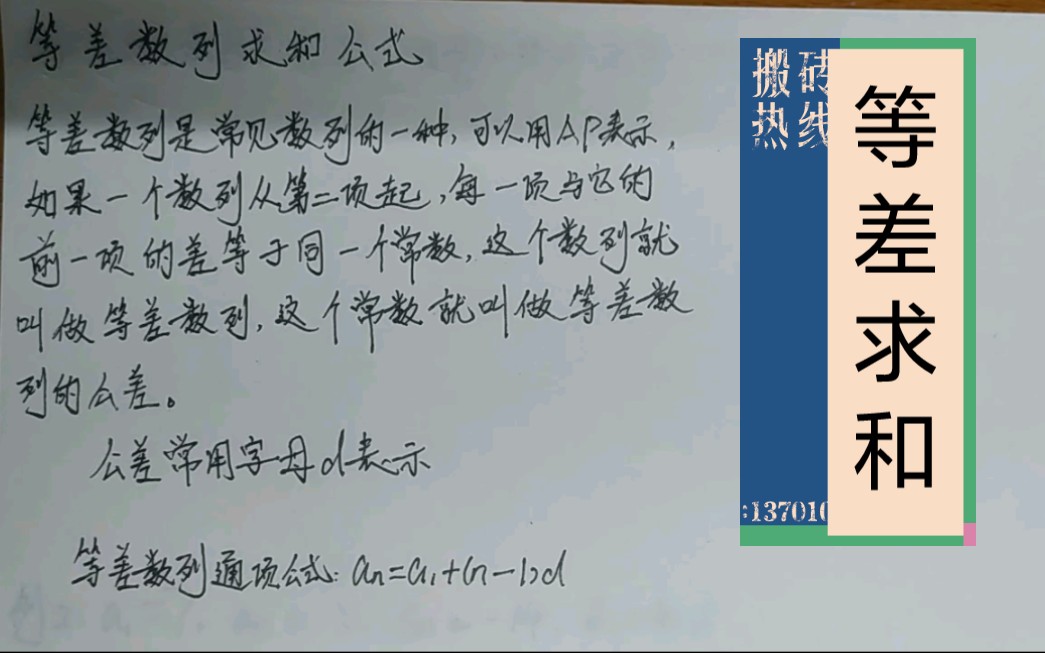 等差数列求和公式
等差数列是常见数列的一种,可以用AP表示,
如果一个数列从第二项起,每一项与它的
前一项的差等于同一个常数,这个数列就
叫做等差数列,这个常数就叫做等差数
列的公差。
公差常用字母d表示
等差数列通项公式:an=a1+(n-1)d
搬砖
热线
:137010
等差求和